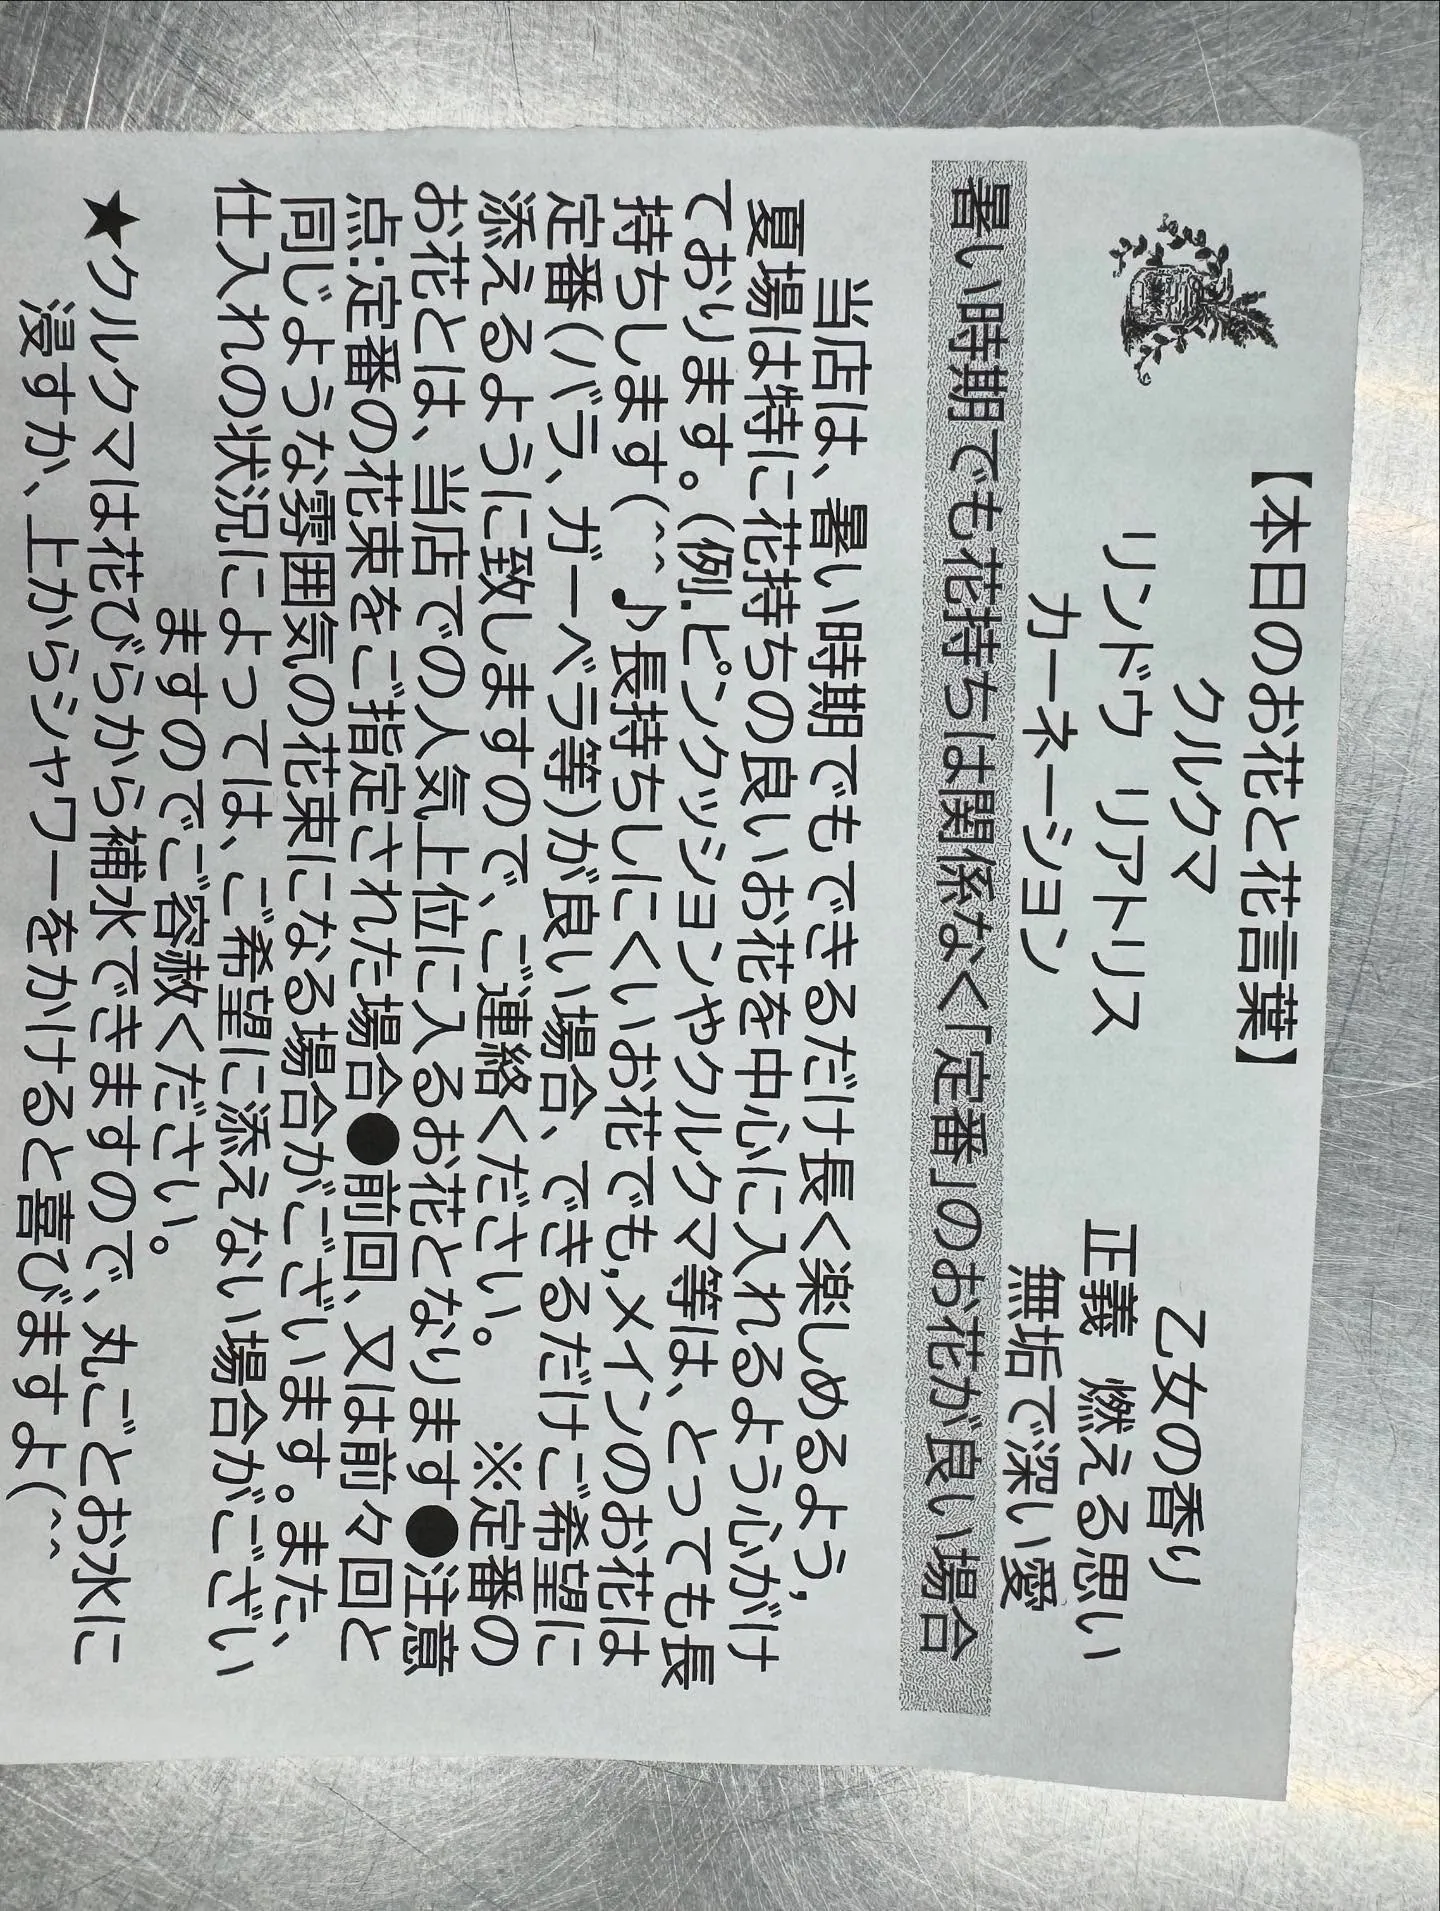 【本日のお花と花言葉】
クルクマ　乙女の香り
リンドウ　リアトリス　正義　燃える思い
カーネーション　無垢で深い愛
暑い時期でも花持ちは関係なく「定番」のお花が良い場合
当店は、暑い時期でもできるだけ長く楽しめるよう,
夏場は特に花持ちの良いお花を中心に入れるよう心がけ
ております。(例.ピンクッションやクルクマ等は、とっても長
持ちします(^^♪長持ちしにくいお花でも,メインのお花は
定番(バラ、ガーベラ等)が良い場合、できるだけご希望に
添えるように致しますので、ご連絡ください。　※定番の
お花とは、当店での人気上位に入るお花となります●注意
点:定番の花束をご指定された場合●前回、又は前々回と
同じような雰囲気の花束になる場合がございます。また、
仕入れの状況によっては、ご希望に添えない場合がござい
ますのでご容赦ください。
★クルクマは花びらから補水できますので、丸ごとお水に
浸すか、上からシャワーをかけると喜びますよ(^^